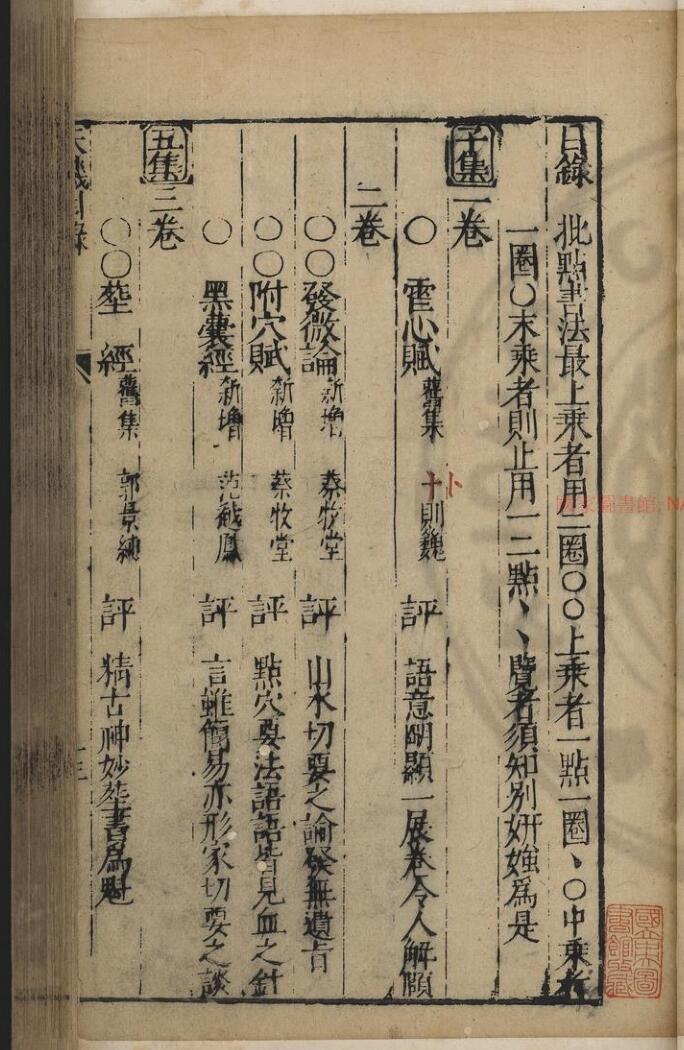 目錄 批點書法最上乘者用二圈〇〇上乘者一點一圈、〇中乘者
一圈〇末乘者則止用一二點、、覽者須知別妍媸為是
子集一卷
〇 雪心賦 舊集 卜則魏 評 語意明顯一展卷令人解頤
二卷
〇〇發微論 新增 蔡牧堂 評 山水切要之論發無遺旨
〇〇附穴賦 新增 蔡牧堂 評 點穴要法語語皆見血之針
〇 黑囊經 新增 范越鳳 評 言雖簡易亦形家切要之談
丑集三卷
〇〇塟 經 舊集 郭景純 評 精古神妙塟書為魁
國家圖書館
國立圖書館藏